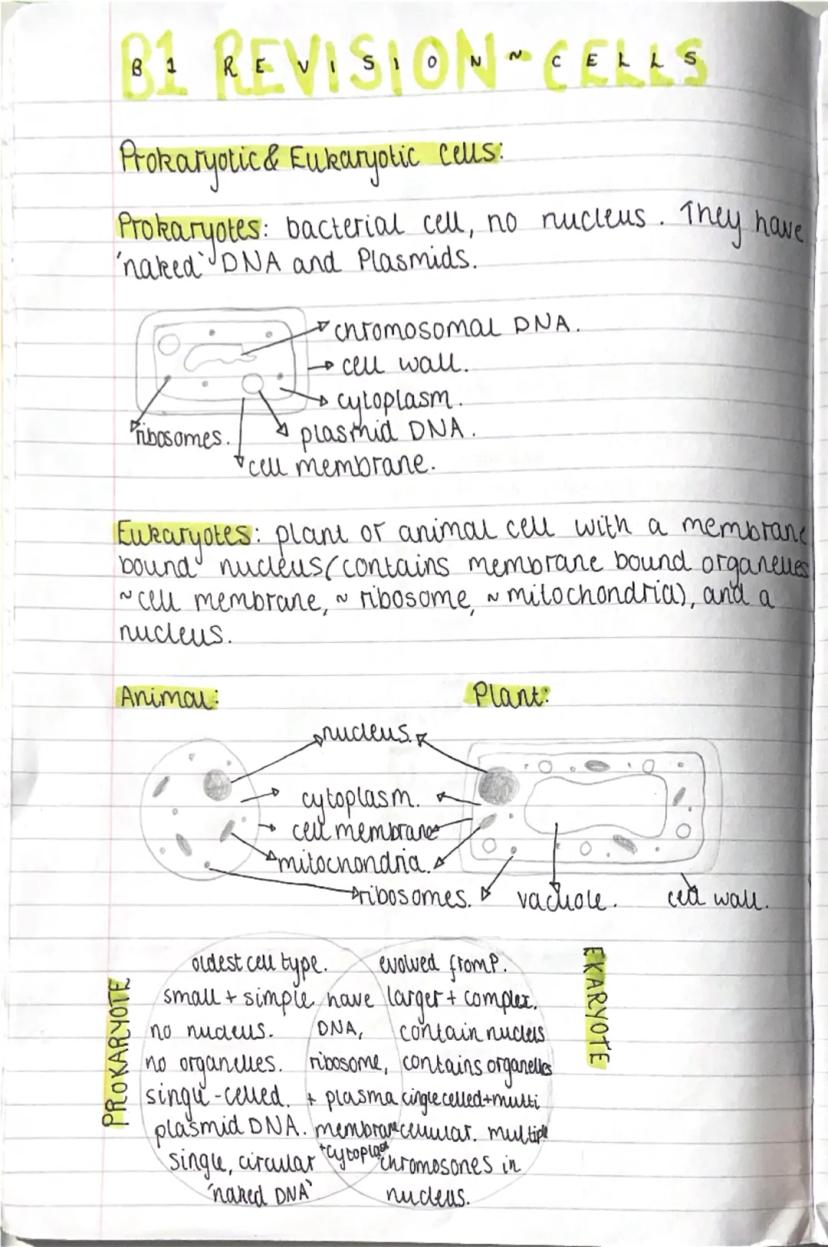 B1 REVISION ~ CELLS
Prokaryotic & Eukaryotic cells:
Prokaryotes: bacterial cell, no nucleus. They have
'naked' DNA and Plasmids.
chromosomal DNA.
cell wall.
cytoplasm.
ribosomes. plasmid DNA.
cell membrane.
Eukaryotes: plant or animal cell with a membrane
bound nucleus (contains membrane bound organelles
~ cell membrane, ~ ribosome, ~ mitochondria), and a
nucleus.
Animal: Plant:
nucleus.
cytoplasm.
cell membrane
mitochondria.
ribosomes. vacuole. cell wall.
PROKARYOTE
oldest cell type.
small + simple
no nucleus.
no organelles.
single-celled.
plasmid DNA.
single, circular
'naked DNA'
have
DNA,
ribosome,
+ plasma
membrane
+cytoplasm
evolved from P.
larger + complex.
contain nucleus
contains organelles
single celled + multi
cellular. multiple
chromosones in
nucleus.
EKARYOTE